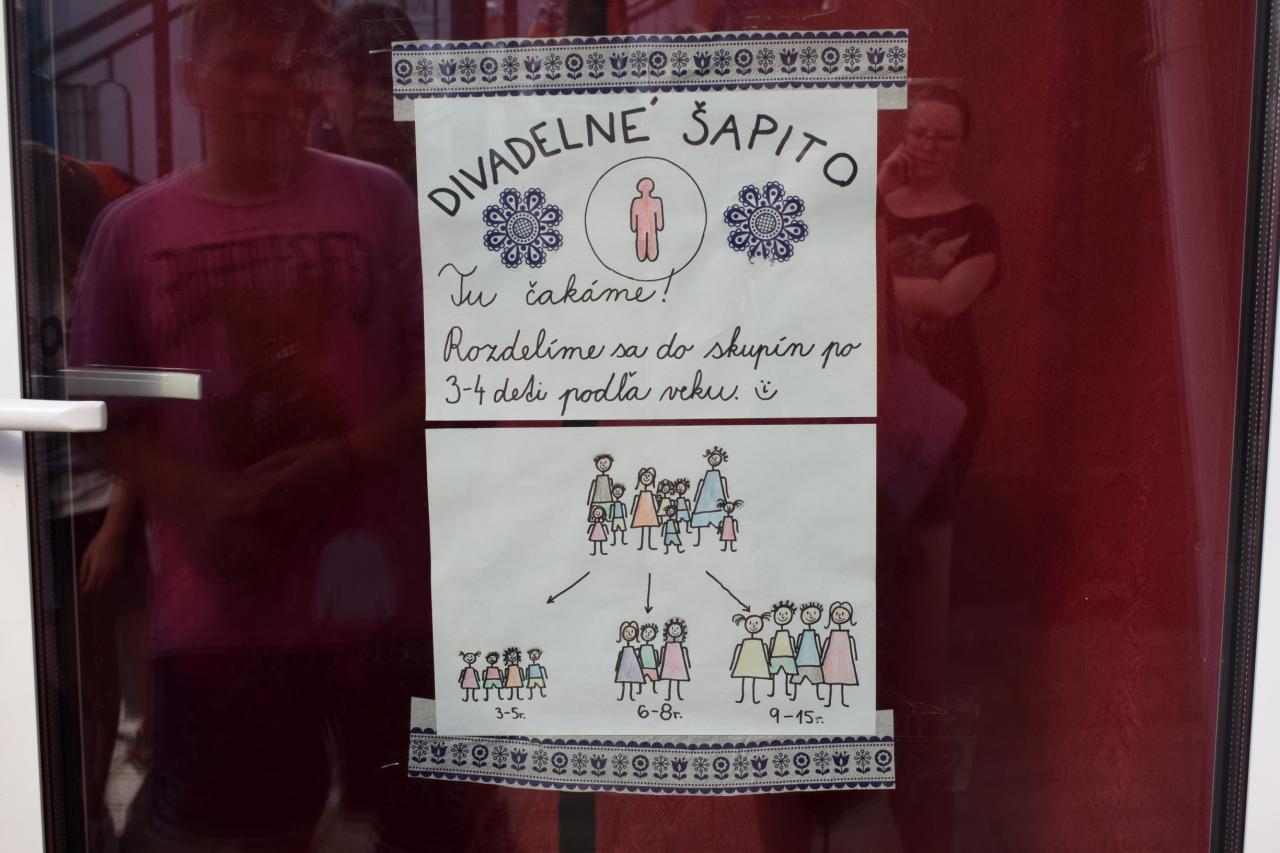 DIVADELNÉ ŠAPITO
Tu čakáme!
Rozdelíme sa do skupín po
3-4 deti podľa veku.
3-5r.
6-8r.
9-15r.